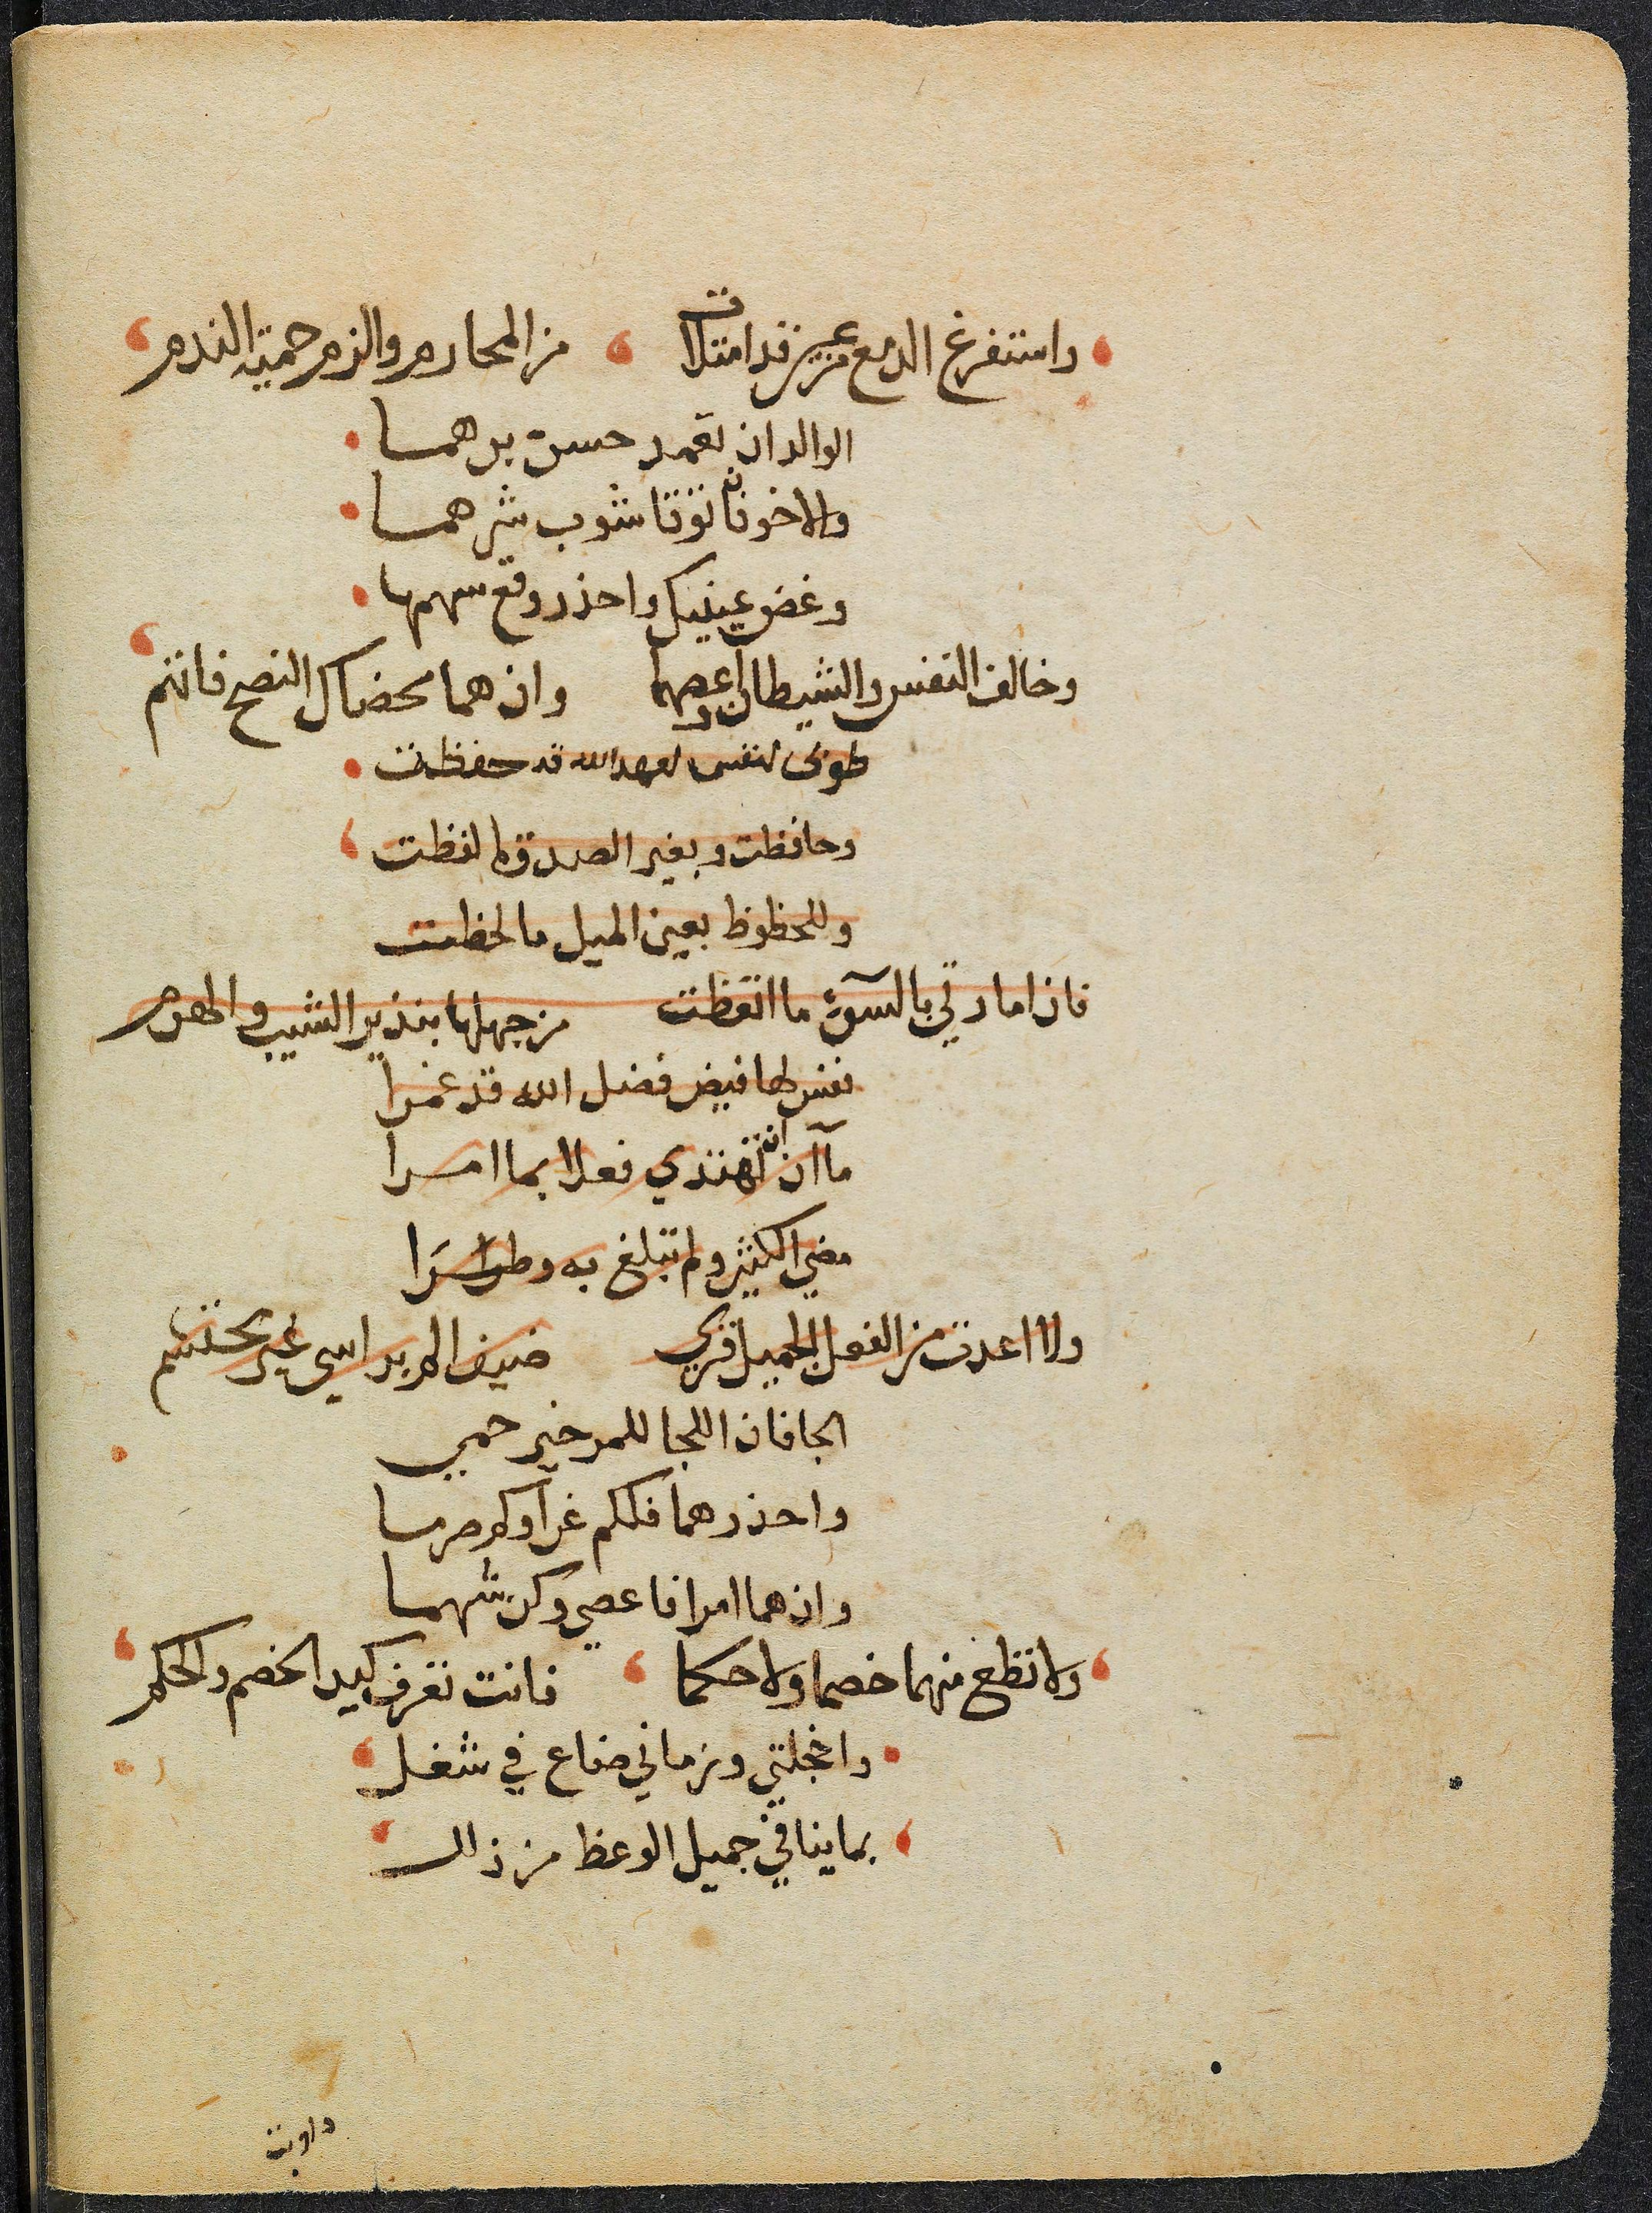 واستفرغ الدمع من عين قد امتلات من المحارم والزم حمية الندم
الوالدان تعمد حسن برهما
والاخوان توقا شوب شرهما
وغض عينيك واحذر وقع سهمها
وخالف النفس والشيطان واعصهما وان هما محضاك النصح فاتهم
طوبى لنفس لعهد الله قد حفظت
وحافظت وبغير الصدق ما لفظت
وللحظوظ بعين الميل ما لحظت
فان امارتي بالسوء ما اتعظت من جهلها بنذير الشيب والهرم
نفس لها فيض فضل الله قد غمرا
ما آن ان تهتدي فعلا بما امرا
مضى الكثير ولم تبلغ به وطرا
ولا اعدت من الفعل الجميل قرى ضيف الم براسي غير محتشم
الجا فان اللجا للمر خير حمى
واحذرهما فلكم غرا وكم رما
وان هما امرا فاعصي وكن شهما
ولا تطع منهما خصما ولا حكما فانت تعرف كيد الخصم والحكم
واخجلتي وزماني ضاع في شغل
بما ينافي جميل الوعظ من زلل